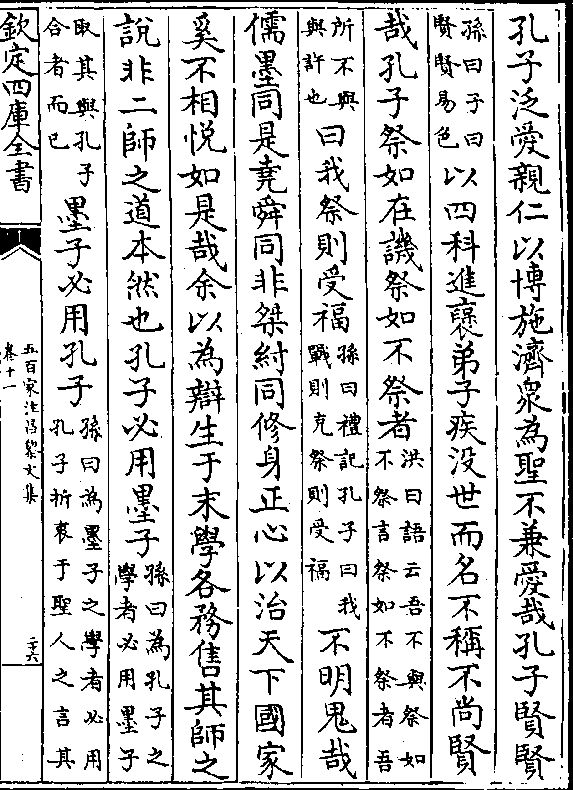 孔子泛愛親仁以博施濟衆為聖不兼愛哉孔子賢賢
孫曰子曰賢賢易色以四科進襃弟子疾沒世而名不稱不尚賢
哉孔子祭如在譏祭如不祭者洪曰語云吾不與祭如不祭言祭如不祭者吾
所不與與許也曰我祭則受福孫曰禮記孔子曰我戰則克祭則受福不明鬼哉
儒墨同是堯舜同非桀紂同修身正心以治天下國家
奚不相悅如是哉余以為辯生于末學各務售其師之
說非二師之道本然也孔子必用墨子孫曰為孔子之學者必用墨子
取其與孔子合者而已墨子必用孔子孫曰為墨子之學者必用孔子折衷于聖人之言其
欽定四庫全書
五百家注昌黎文集
卷十一
二十六